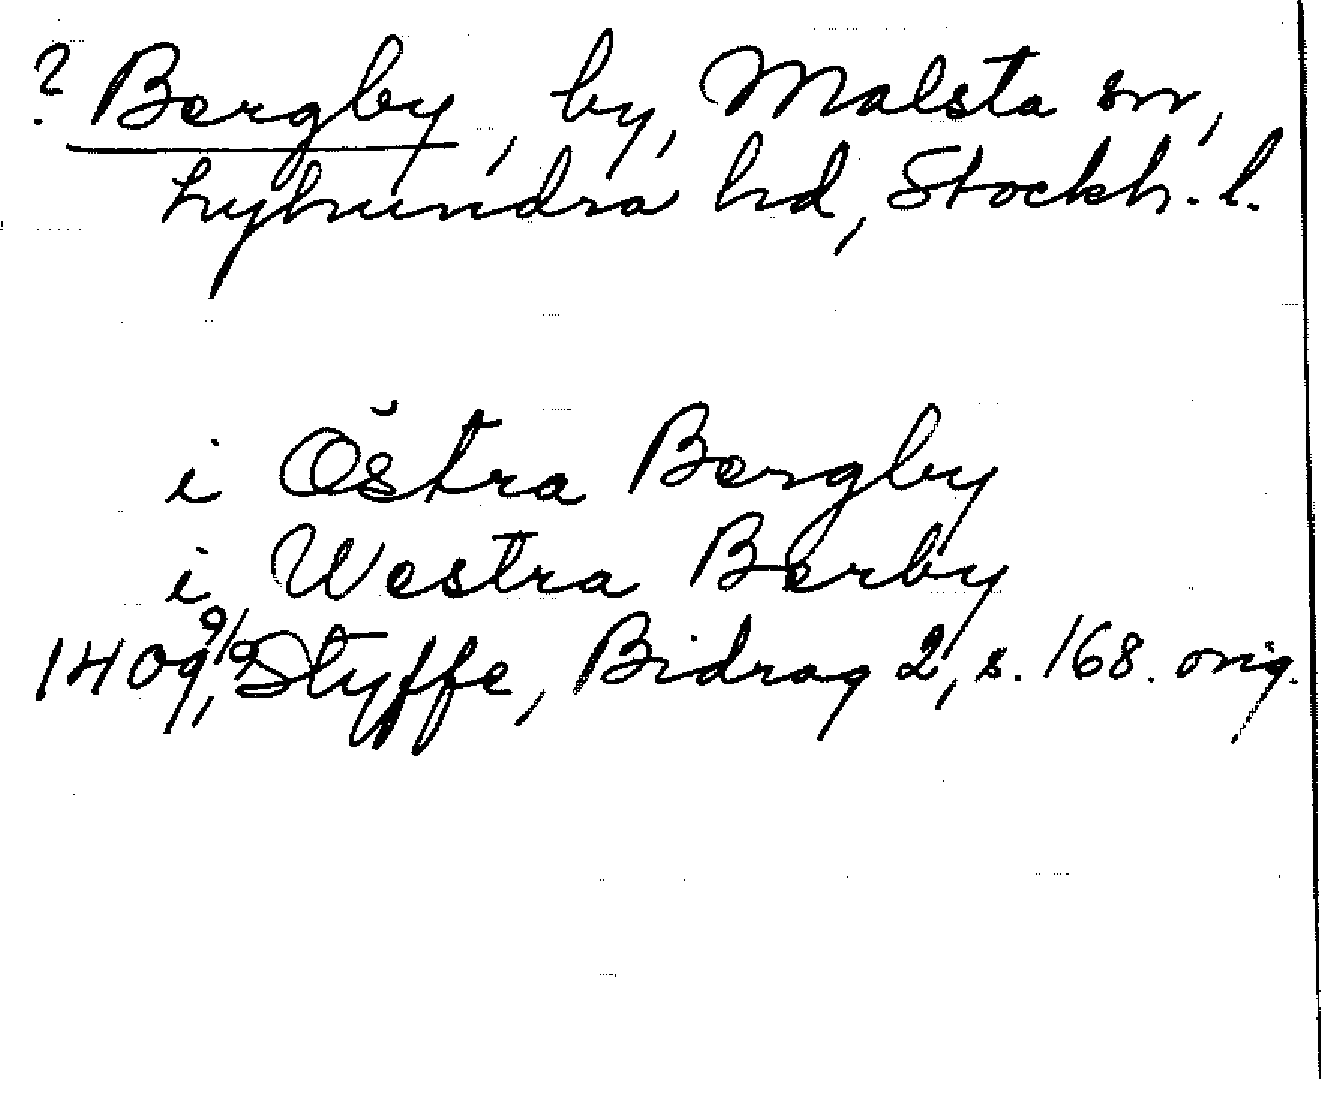 ? Bergby, by, Malsta sn,
Lyhundra hd, Stockh. l.
i Östra Bergby
i Westra Berby
1409 9/9, Styffe, Bidrag 2, s. 168. orig.